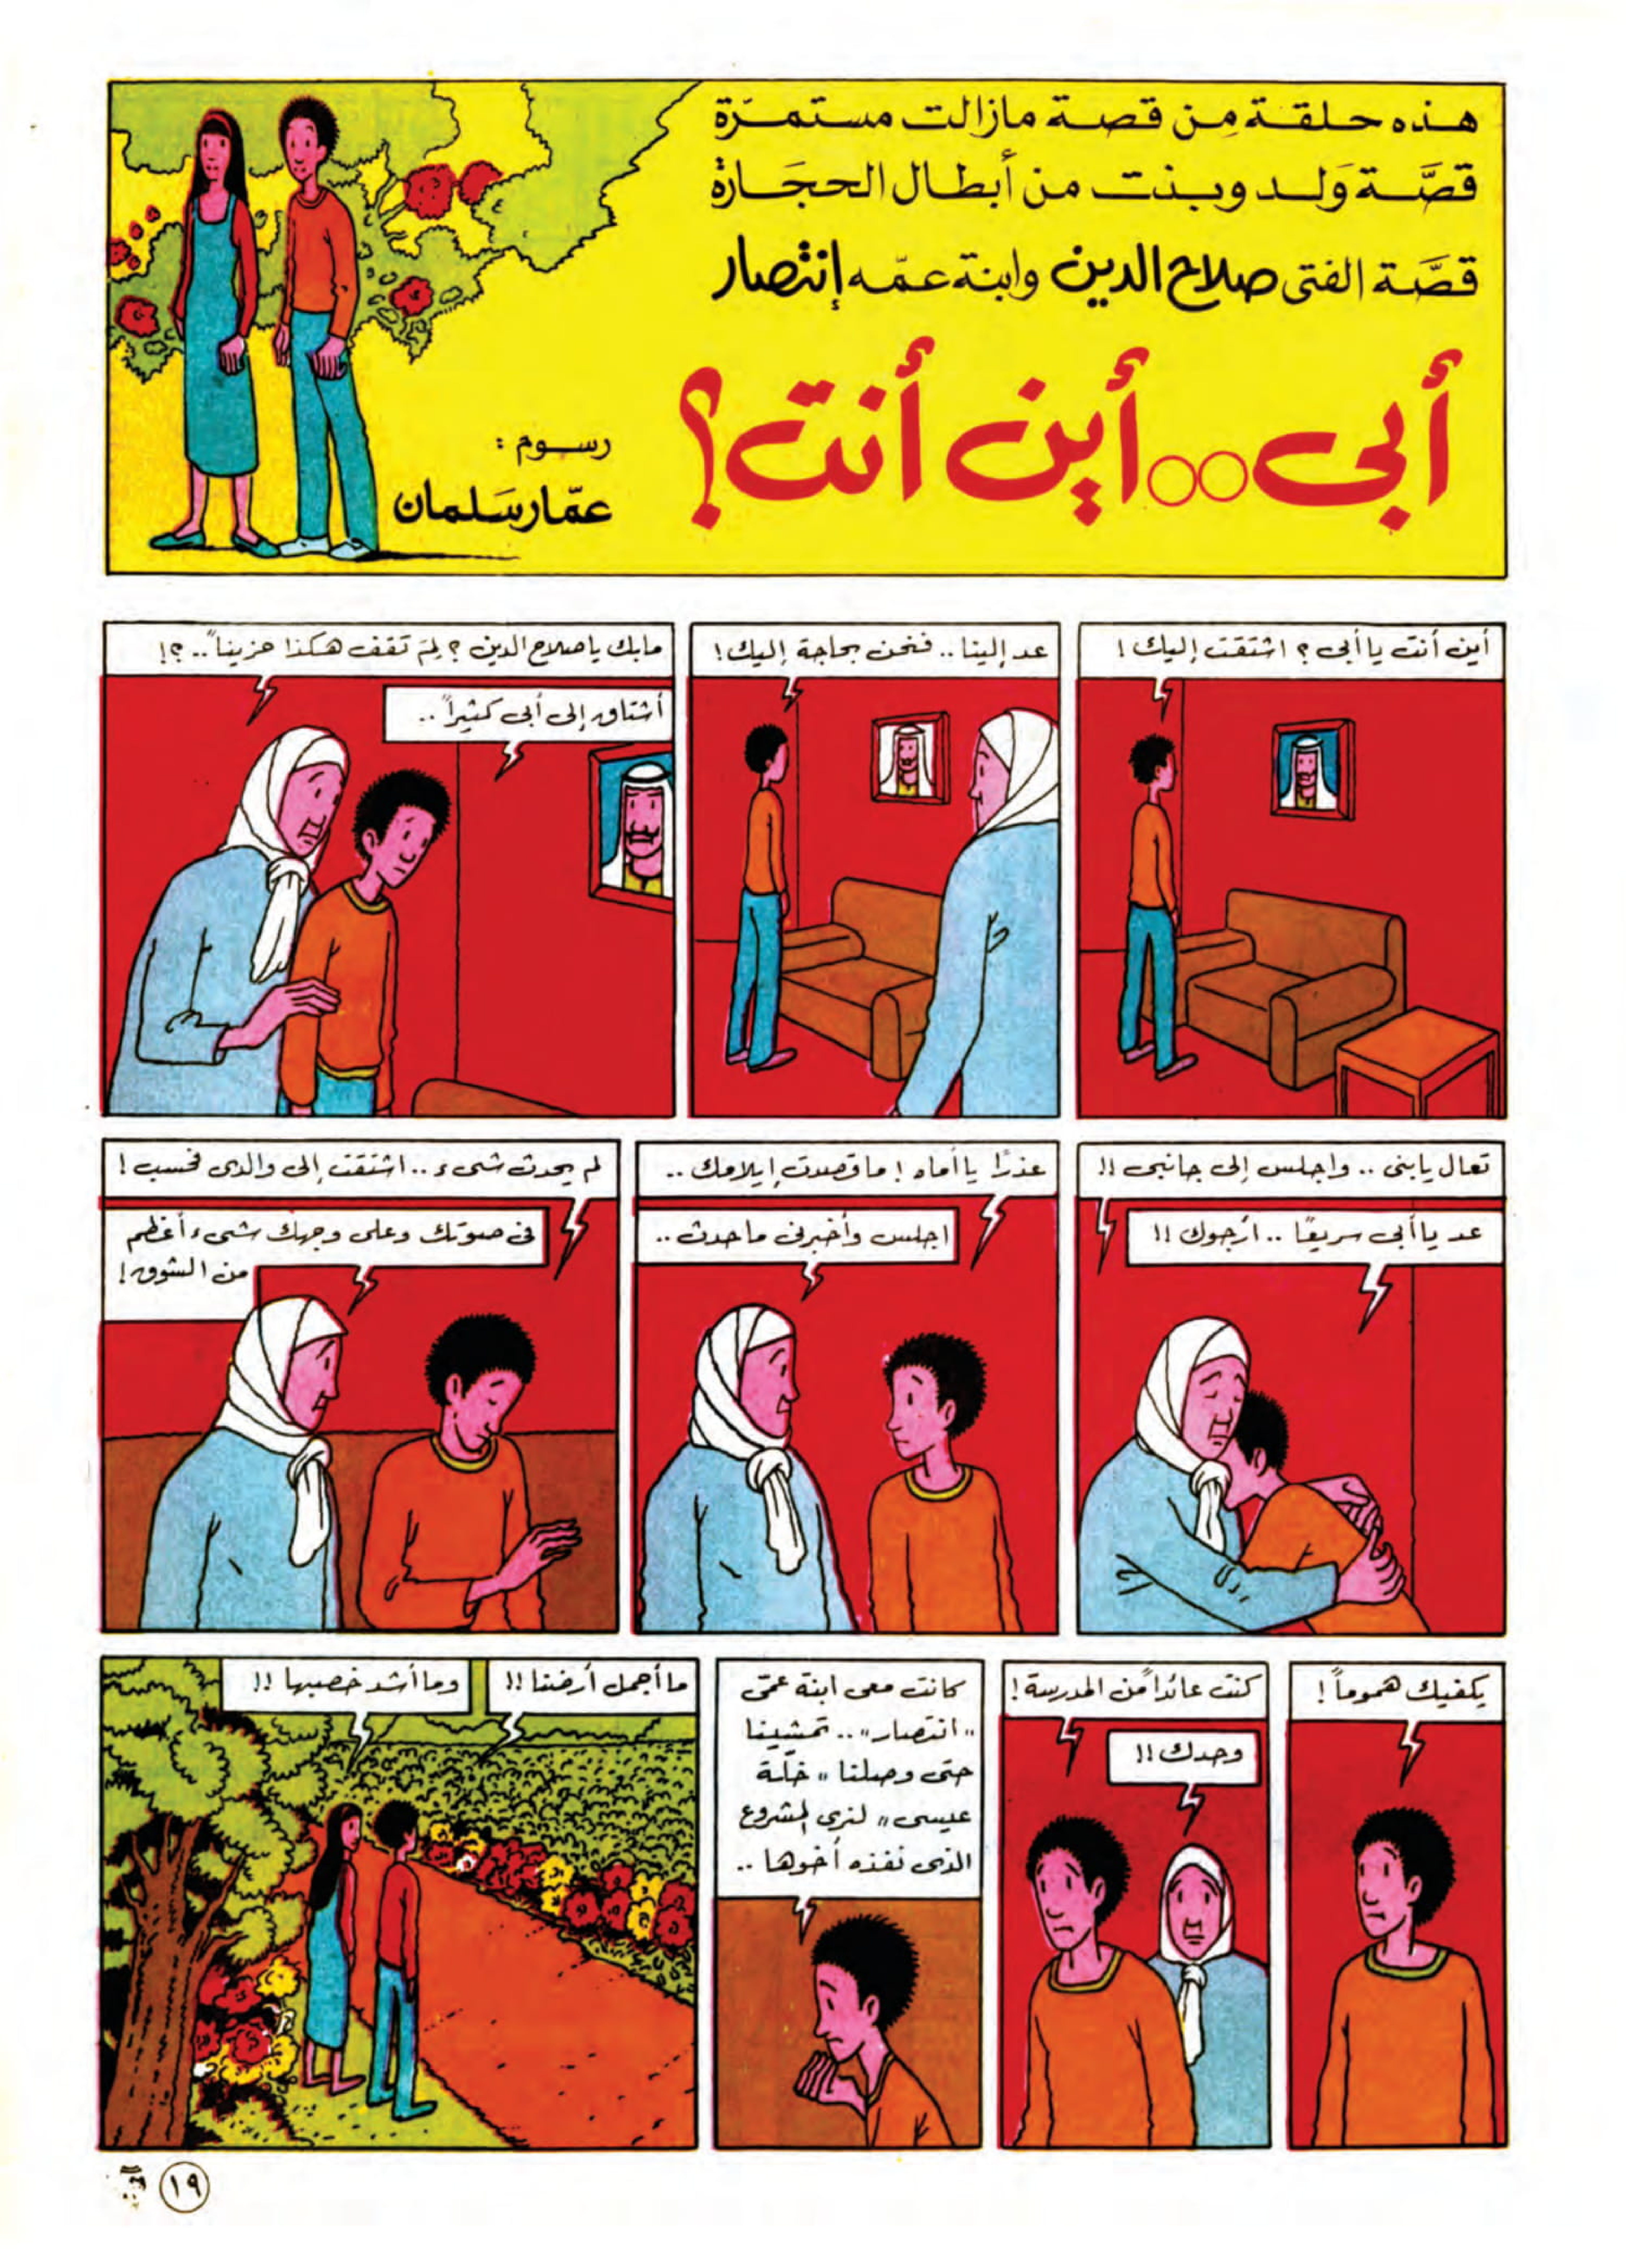 هذه حلقة مِن قصة مازالت مستمرّة
قصَّة وَلد وبنت من أبطال الحجَارة
قصَّة الفتى صلاح الدين وابنة عمّه إنتصار
أبى..أين أنت؟
رسوم :
عمّار سَلمان
أين أنت يا أبى ؟ اشتقت إليك !
عد إلينا .. فنحن بحاجة إليك !
مابك ياصلاح الدين ؟ لِمَ تقف هكذا حزيناً .. ؟!
أشتاق إلى أبى كثيراً ..
تعال يابنى .. واجلس إلى جانبى !!
عد يا أبى سريعًا .. أرجوك !!
عذرًا يا أماه ! ما قصدت إيلامك ..
اجلس وأخبرنى ماحدث ..
لم يحدث شىء .. اشتقت إلى والدى فحسب !
فى صوتك وعلى وجهك شىء أعظم
من الشوق !
يكفيك هموماً !
كنت عائداً من المدرسة !
وحدك !!
كانت معى ابنة عمّى
"انتصار" .. تمشينا
حتى وصلنا "خلّة
عيسى" لنرى المشروع
الذى نفذه أخوها ..
ما أجمل أرضنا !!
وما أشد خصبها !!
١٩